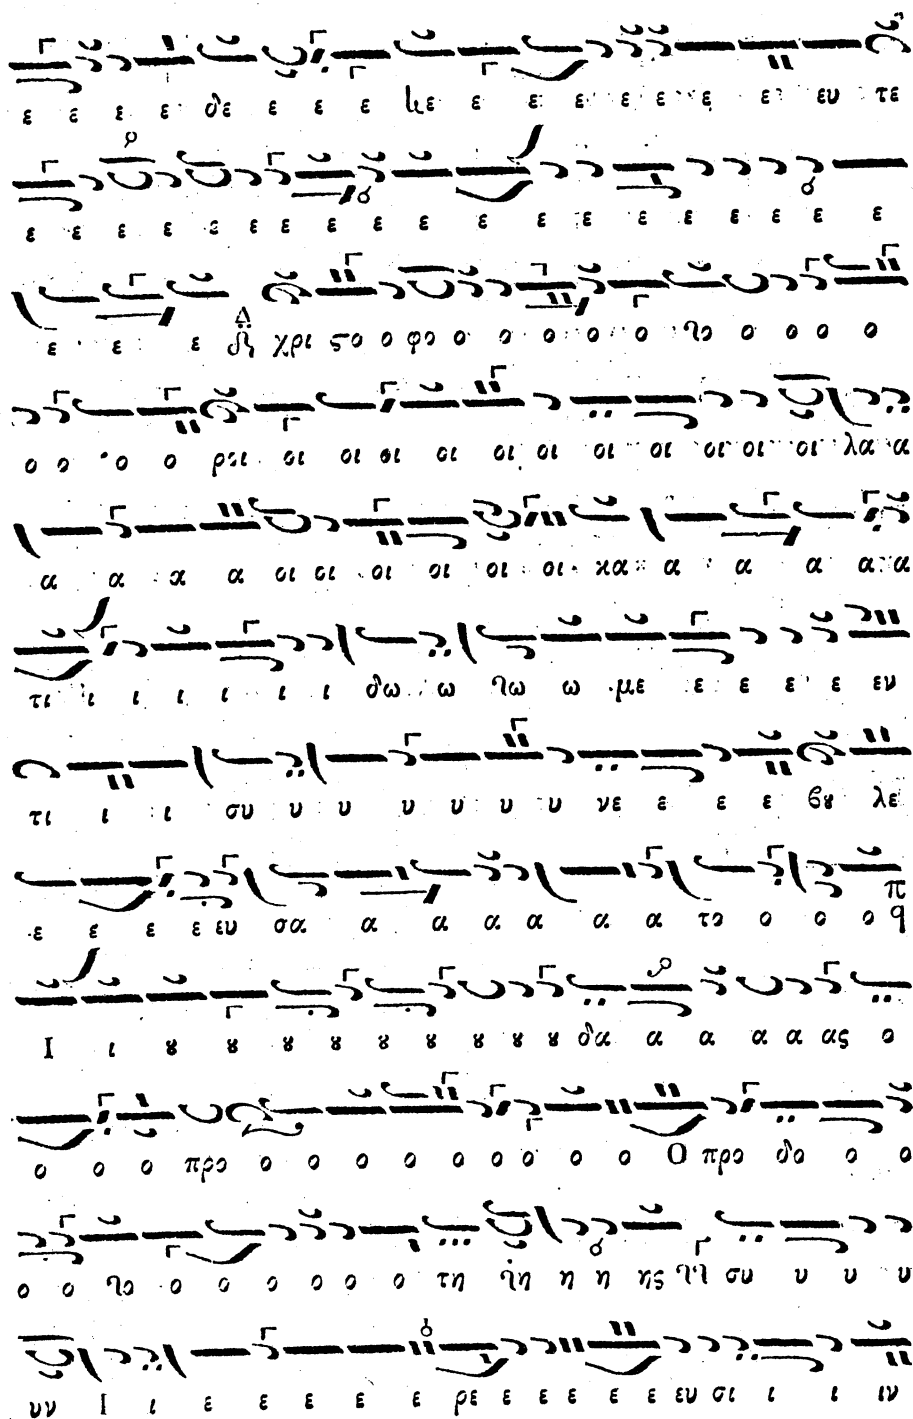 ε ε ε ε δε ε ε ε κε ε ε ε ε ε ε ε ευ τε
ε ε ε ε ε ε ε ε ε ε ε ε ε ε ε ε ε ε ε ε
ε ε ε χρι ϛο ο φο ο ο ο ο ο ο ο ο ο ο
ο ο ο ο ροι οι οι οι οι οι οι οι οι οι οι οι λα α
α α α α οι οι οι οι οι οι κα α α α α α
τι ι ι ι ι ι ι δω ω ω με ε ε ε ε εν
τι ι ι συ υ υ υ υ υ υ νε ε ε ε βȣ λε
ε ε ε ε ευ σα α α α α α α το ο ο ο π q
Ι ι ȣ ȣ ȣ ȣ ȣ ȣ ȣ ȣ ȣ δα α α α α ας ο
ο ο ο προ ο ο ο ο ο ο ο ο ο Ο προ δο ο ο
ο ο ο ο ο ο ο ο ο τη η η ης συ υ υ υ
υν Ι ι ε ε ε ε ε ρε ε ε ε ε ε ευ σι ι ι ιν